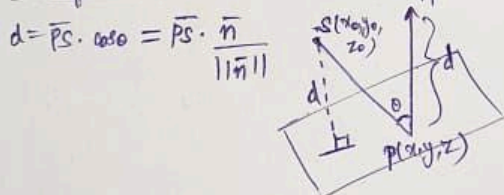 d = P̅S̅ · cosθ = P̅S̅ · n̅ / ||n̅||
S(x₀,y₀,
z₀)
d
d
θ
P(x,y,z)